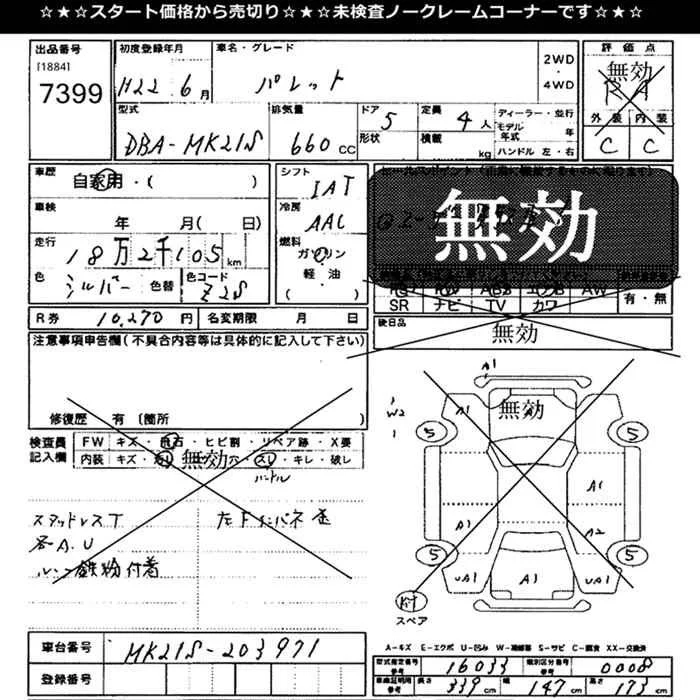 ☆★☆★スタート価格から売切り☆★☆★未検査ノークレームコーナーです☆★☆
出品番号 初度登録年月 車名・グレード 2WD・4WD 評価点
[1884]
7399 H22年6月 パレット 無効
RA
型式 排気量 ドア 5 定員 4人 ディーラー・並行 外装 内装
DBA-MK21S 660cc 形状 積載 kg モデル年式 年 C C
ハンドル 左・右
車歴 自家用・( ) シフト IAT
車検 年 月( 日) 冷房 AAC 無効
走行 18万2千105km 燃料 ガソリン・軽油・( )
色 シルバー 色替 色コード Z2S
SR ナビ TV カワ 有・無
R券 10,270円 名変期限 月 日 後日品 無効
注意事項申告欄(不具合内容等は具体的に記入して下さい)
修復歴 有〔箇所 〕
検査員記入欄 FW キズ・飛石・ヒビ割・リペア跡・X要
内装 キズ・無効・穴・スレ・キレ・破レ
ハンドル
スタッドレスT
各A.U
鉄粉付着
A1
W2
A1 無効 A1
5 5
A1
A1 A2
5 5
UA1 A1 UA1
スペア
A-キズ E-エクボ U-凹み W-補修跡 S-サビ C-腐食 XX-交換済
車台番号 MK21S-203971
登録番号
型式指定番号 参考 16033 類別区分番号 参考 0008
車庫証明用 参考 長さ 339cm 幅 147cm 高さ 173cm